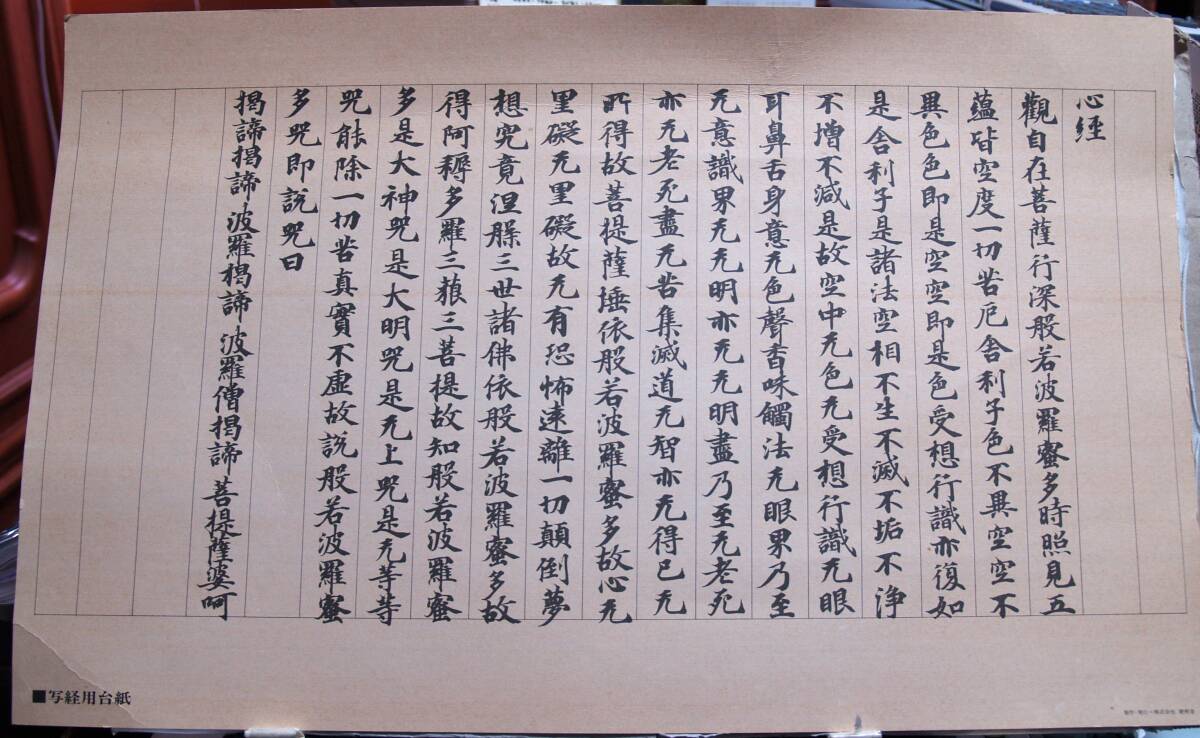 心經
觀自在菩薩行深般若波羅蜜多時照見五
蘊皆空度一切苦厄舍利子色不異空空不
異色色即是空空即是色受想行識亦復如
是舍利子是諸法空相不生不滅不垢不浄
不増不減是故空中无色无受想行識无眼
耳鼻舌身意无色聲香味觸法无眼界乃至
无意識界无无明亦无无明盡乃至无老死
亦无老死盡无苦集滅道无智亦无得已无
所得故菩提薩埵依般若波羅蜜多故心无
罣礙无罣礙故无有恐怖遠離一切顛倒夢
想究竟涅槃三世諸佛依般若波羅蜜多故
得阿耨多羅三藐三菩提故知般若波羅蜜
多是大神咒是大明咒是无上咒是无等等
咒能除一切苦真實不虛故說般若波羅蜜
多咒即說咒曰
揭諦揭諦 波羅揭諦 波羅僧揭諦 菩提薩婆呵
■写経用台紙